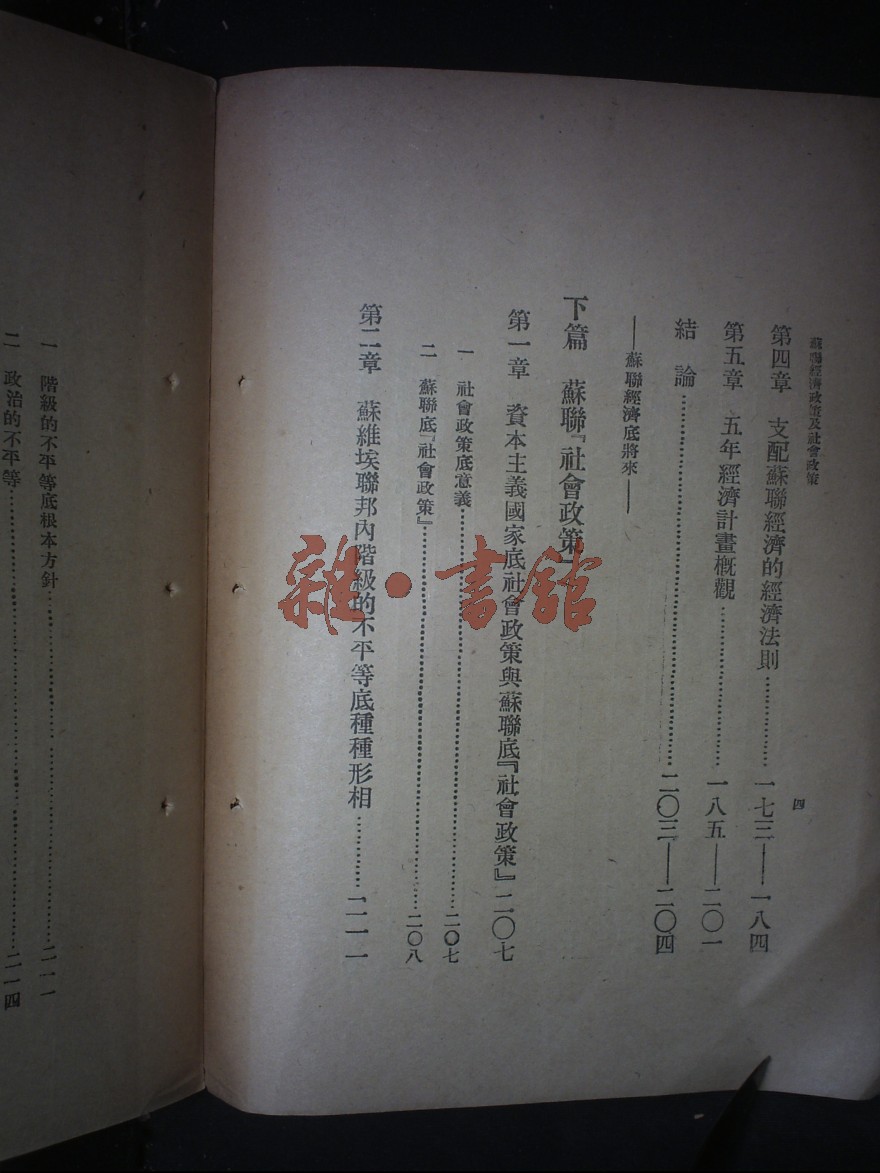 蘇聯經濟政策及社會政策
四
第四章　支配蘇聯經濟的經濟法則……………一七三——一八四
第五章　五年經濟計畫槪觀……………一八五——二〇一
結　論……………二〇三——二〇四
——蘇聯經濟底將來——
下篇　蘇聯『社會政策』
第一章　資本主義國家底社會政策與蘇聯底『社會政策』二〇七
一　社會政策底意義……………二〇七
二　蘇聯底『社會政策』……………二〇八
第二章　蘇維埃聯邦內階級的不平等底種種形相……………二一一
一　階級的不平等底根本方針……………二一一
二　政治的不平等……………二一四
雜·書館